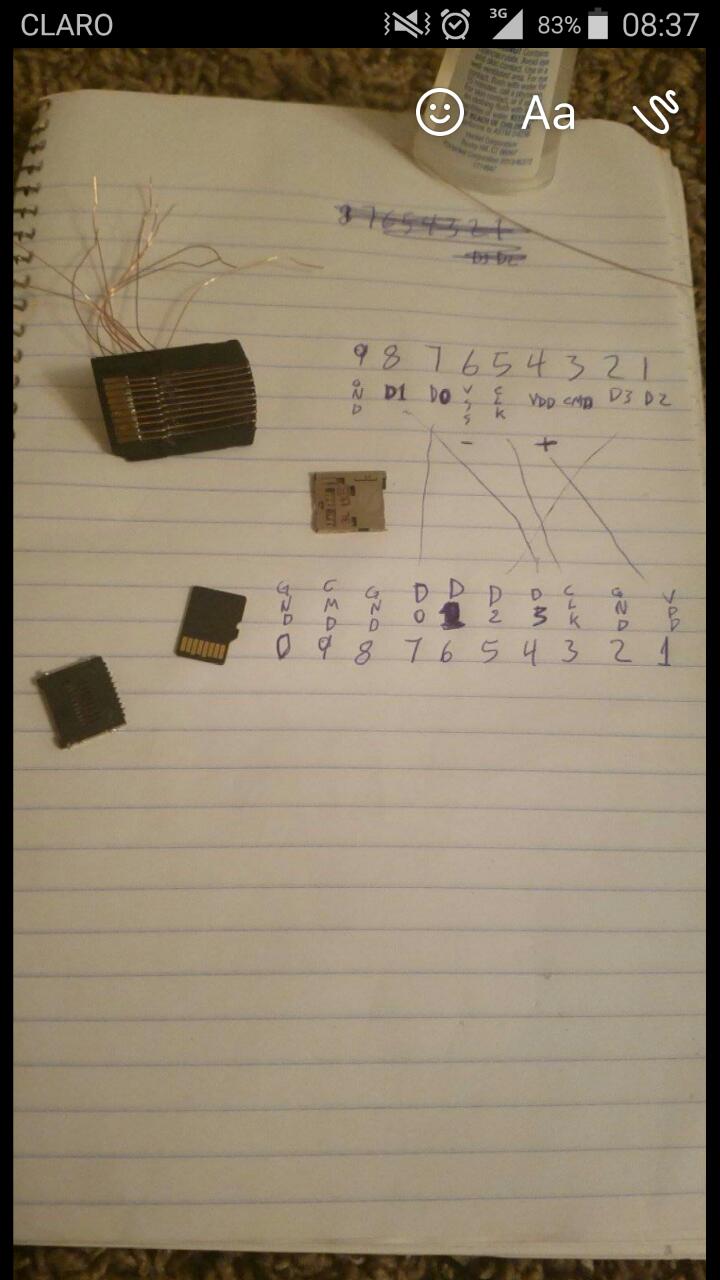 CLARO 3G 83% 08:37
Aa
8 7 6 5 4 3 2 1
D3 D2
9 8 7 6 5 4 3 2 1
GND D1 D0 VSS CLK VDD CMD D3 D2
- +
GND CMD GND D0 D1 D2 D3 CLK GND VDD
0 9 8 7 6 5 4 3 2 1